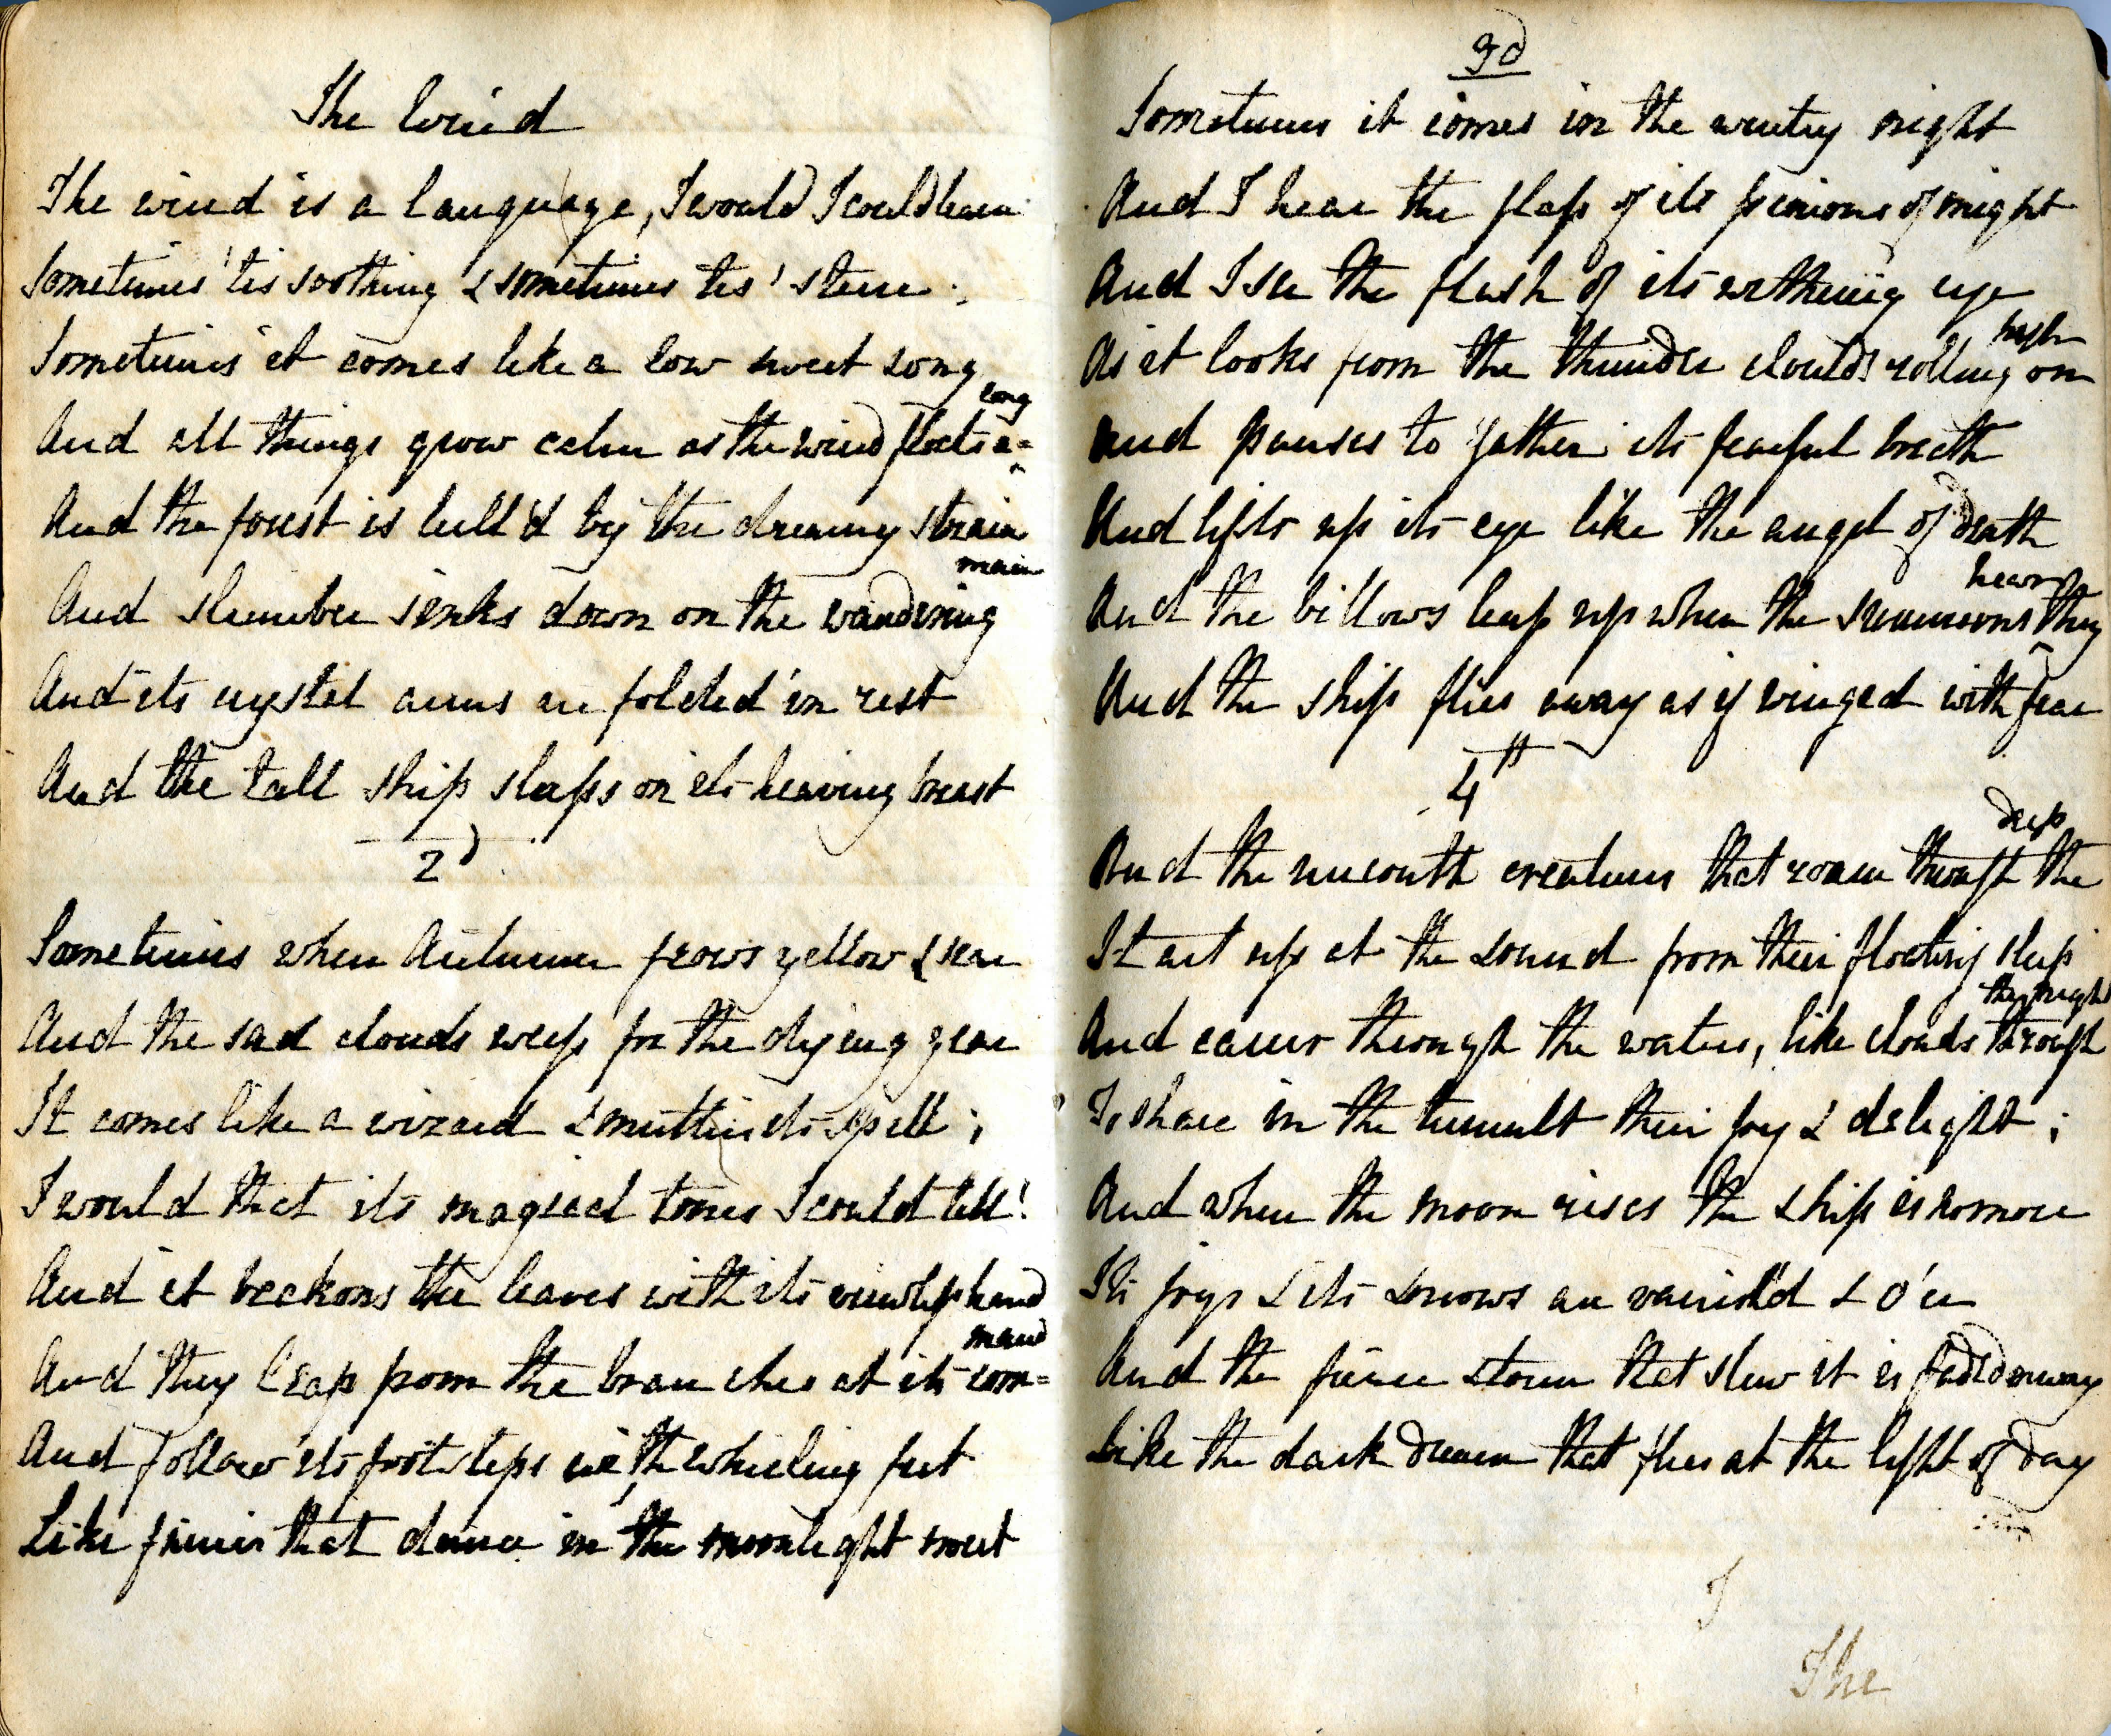 The Wind
The wind is a language, I would I could learn
Sometimes 'tis soothing & sometimes tis' stern ;
Sometimes it comes like a low sweet song
And all things grow calm as the wind floats a=long
And the forest is lull'd by the dreamy strain
And slumber sinks down on the wandering main
And its crystal arms are folded in rest
And the tall ship sleeps on its heaving breast
2d
Sometimes when Autumn grows yellow & sear
And the sad clouds weep for the dying year
It comes like a wizard & mutters its spell ;
I would that its magical tones I could tell!
And it beckons the leaves with its viewless hand
And they leap from the branches at its com=mand
And follow its footsteps with wheeling feet
Like fairies that dance in the moonlight sweet
3d
Sometimes it comes in the wintry night
And I hear the flap of its pinions of might
And I see the flash of its withering eye
As it looks from the thunder clouds rolling on high
And pauses to gather its fearful breath
And lifts up its eye like the angel of death
And the billows leap up when the summons they hear
And the ship flies away as if winged with fear
4th
And the uncouth creatures that roam through the deep
Start up at the sound from their floating sleep
And career through the waters, like clouds through the night
To share in the tumult their joy & delight ;
And when the moon rises the ship is no more
Its joys & its sorrows are vanish'd & o'er
And the fierce storm that slew it is faded away
Like the dark dream that flies at the light of day
I
The